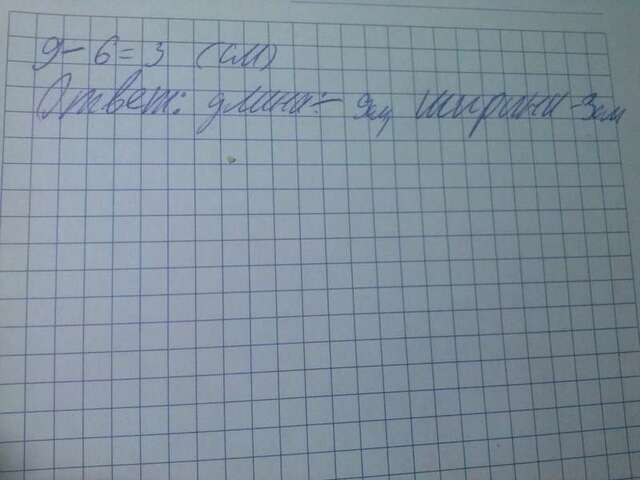 9 - 6 = 3 (см)
Ответ: длина - 9см, ширина - 3см